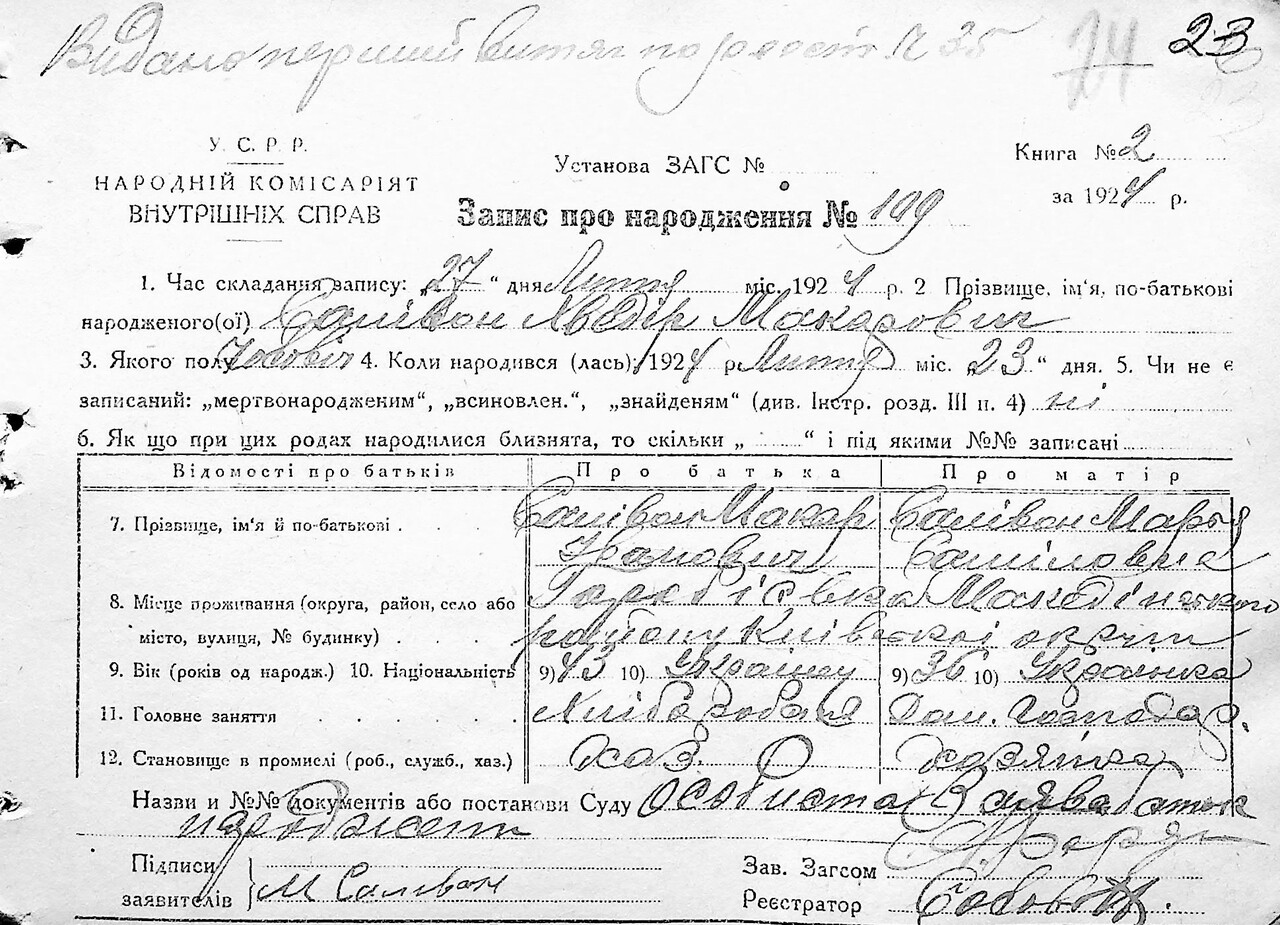 Видано перший витяг по реєстр. № 35 24 23
У. С. Р. Р.
НАРОДНІЙ КОМІСАРІЯТ
ВНУТРІШНІХ СПРАВ
Установа ЗАГС №
Книга № 2
за 1924 р.
Запис про народження № 199
1. Час складання запису: „27“ дня Лютня міс. 1924 р. 2 Прізвище, ім‘я, по-батькові
народженого(ої) Салівон Хведір Макарович
3. Якого полу Чоловіч 4. Коли народився (лась); 1924 р. Лютня міс. „23“ дня. 5. Чи не є
записаний: „мертвонародженим“, „всиновлен.“, „знайденям“ (див. Інстр. розд. III п. 4) ні
6. Як що при цих родах народилися близнята, то скільки „ “ і під якими №№ записані
Відомості про батьків Про батька Про матір
7. Прізвище, ім‘я й по-батькові Салівон Макар Салівон Марья
Іванович
8. Місце проживання (округа, район, село або
місто, вулиця, № будинку) району Київської округи
9. Вік (років од народж.) 10. Національність 9) 43 10) Українец 9) 36 10) Українка
11. Головне заняття Хлібороб Дом. Господар.
12. Становище в промислі (роб., служб., хаз.) хаз. хазяйка
Назви и №№ документів або постанови Суду Особиста Заява
Підписи
заявителів М Саливон
Зав. Загсом
Реєстратор